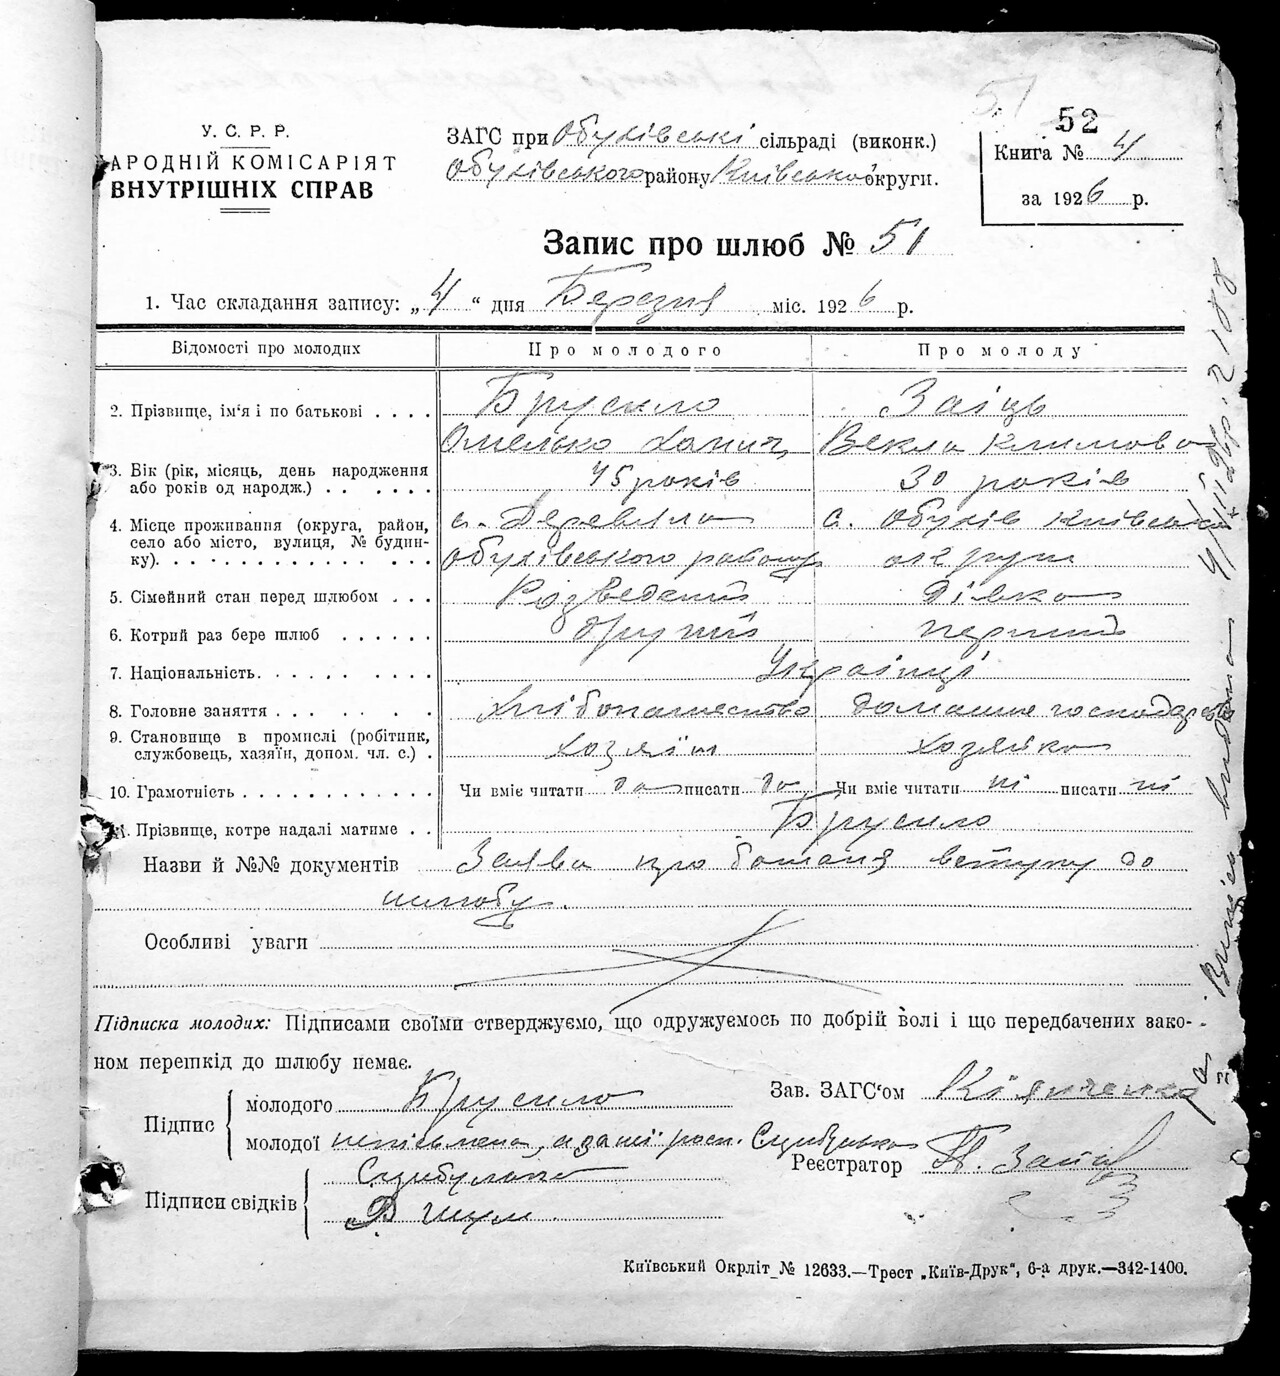 51
52
У. С. Р. Р.
АРОДНІЙ КОМІСАРІЯТ
ВНУТРІШНІХ СПРАВ
ЗАГС при Обухівські сільраді (виконк.)
Обухівського району Київської округи.
Книга № 4
за 1926 р.
Запис про шлюб № 51
1. Час складання запису: „4“ дня Березня міс. 1926 р.
Відомості про молодих Про молодого Про молоду
2. Прізвище, ім‘я і по батькові . . . . Брусило Заїць
Омелько Векла Климова
3. Вік (рік, місяць, день народження
або років од народж.) . . . . . 45 років 30 років
4. Місце проживання (округа, район, с. Деревяна с. Обухів Київської
село або місто, вулиця, № будин-
ку). . . . . . . . . . . . . . . Обухівського району округи
5. Сімейний стан перед шлюбом . . . Розведений Дівка
6. Котрий раз бере шлюб . . . . . . другий перший
7. Національність. . . . . . . . . . Українці
8. Головне заняття . . . . . . . . Хлібопашество домашне господарство
9. Становище в промислі (робітник,
службовець, хазяїн, допом. чл. с.) . хозяїн хозяйка
10. Грамотність . . . . . . . . . . . Чи вміє читати да писати да Чи вміє читати ні писати ні
. Прізвище, котре надалі матиме . . Брусило
Назви й №№ документів Заява про бажаня вступу до
шлюбу.
Особливі уваги
Підписка молодих: Підписами своїми стверджуємо, що одружуємось по добрій волі і що передбачених зако-
ном перешкід до шлюбу немає.
Підпис
молодого Брусило
молодої неписьмена, а за неї росп.
Зав. ЗАГС‘ом Кіяниченко
Реєстратор П. Заїць
Підписи свідків
Д Шум
Київський Окрліт № 12633.—Трест „Київ-Друк“, 6-а друк.—342-1400.